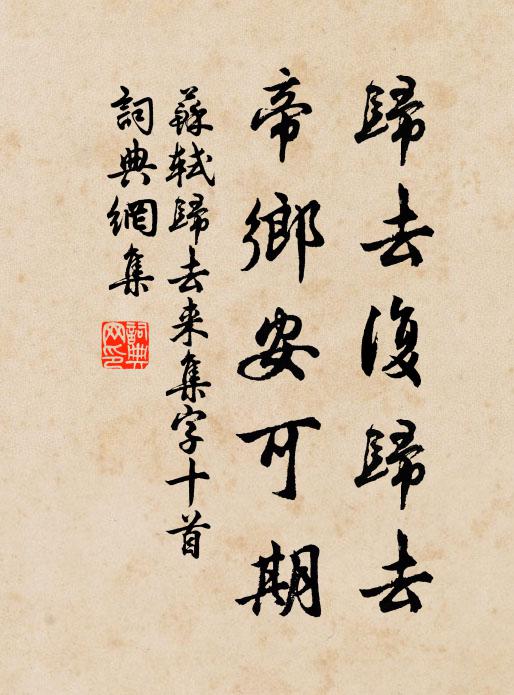 歸去復歸去
帝鄉安可期
蘇軾歸去来集字十首
詞典網集
詞典网印